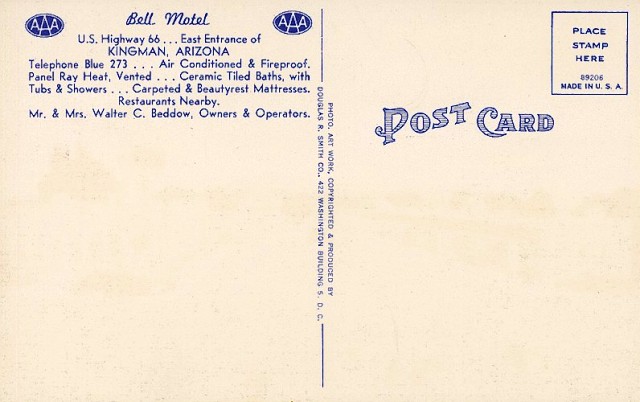 AAA
Bell Motel
AAA
U.S. Highway 66 . . . East Entrance of
KINGMAN, ARIZONA
Telephone Blue 273 . . . Air Conditioned & Fireproof.
Panel Ray Heat, Vented . . . Ceramic Tiled Baths, with
Tubs & Showers . . . Carpeted & Beautyrest Mattresses.
Restaurants Nearby.
Mr. & Mrs. Walter C. Beddow, Owners & Operators.
PHOTO, ART WORK, COPYRIGHTED & PRODUCED BY
DOUGLAS R. SMITH CO., 422 WASHINGTON BUILDING 5, D. C.
POST CARD
PLACE
STAMP
HERE
89206
MADE IN U. S. A.